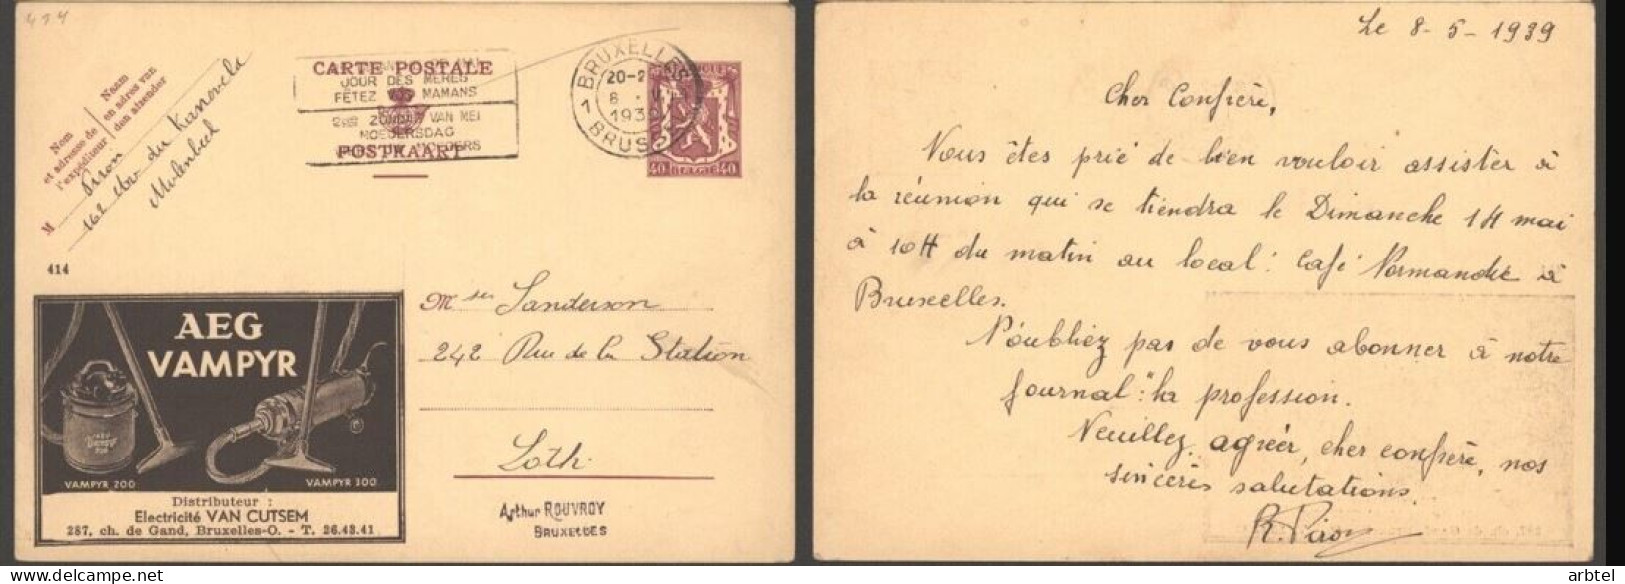 414
CARTE POSTALE
POSTKAART
JOUR DES MÈRES
FÊTEZ VOS MAMANS
ZONDAG VAN MEI
MOEDERSDAG
BRUXELLES
20-2
8 · V
1939
1 BRUSSEL
40 BELGIE 40
Nom
et adresse de
l'expéditeur
Naam
en adres van
den afzender
M Piron
162 Av. du Kanovela
Molenbeek
414
AEG
VAMPYR
VAMPYR 200
VAMPYR 300
Distributeur :
Electricité VAN CUTSEM
287, ch. de Gand, Bruxelles-O. - T. 26.43.41
Mser Sanderson
242 Rue de la Station
Loth.
Arthur ROUVROY
BRUXELLES
Le 8-5-1939
Cher Confrère,
Vous êtes prié de bien vouloir assister à
la réunion qui se tiendra le Dimanche 14 mai
à 10H du matin au local : Café Normandie à
Bruxelles.
N'oubliez pas de vous abonner à notre
journal : "la profession.
Veuillez agréer, cher confrère, nos
sincères salutations.
R. Piron
arbtel